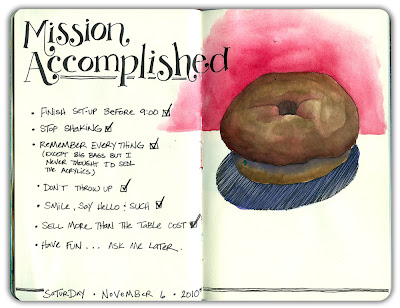 Mission
Accomplished
• FINISH SET-UP BEFORE 9:00 ☑
• STOP SHAKING ☑
• REMEMBER EVERYTHING ☑
(EXCEPT BIG BAGS BUT I
NEVER THOUGHT I'D SELL
THE ACRYLICS)
• DON'T THROW UP ☑
• SMILE, SAY HELLO & SUCH ☑
• SELL MORE THAN THE TABLE COST ☑
• HAVE FUN... ASK ME LATER.
SATURDAY • NOVEMBER 6 • 2010